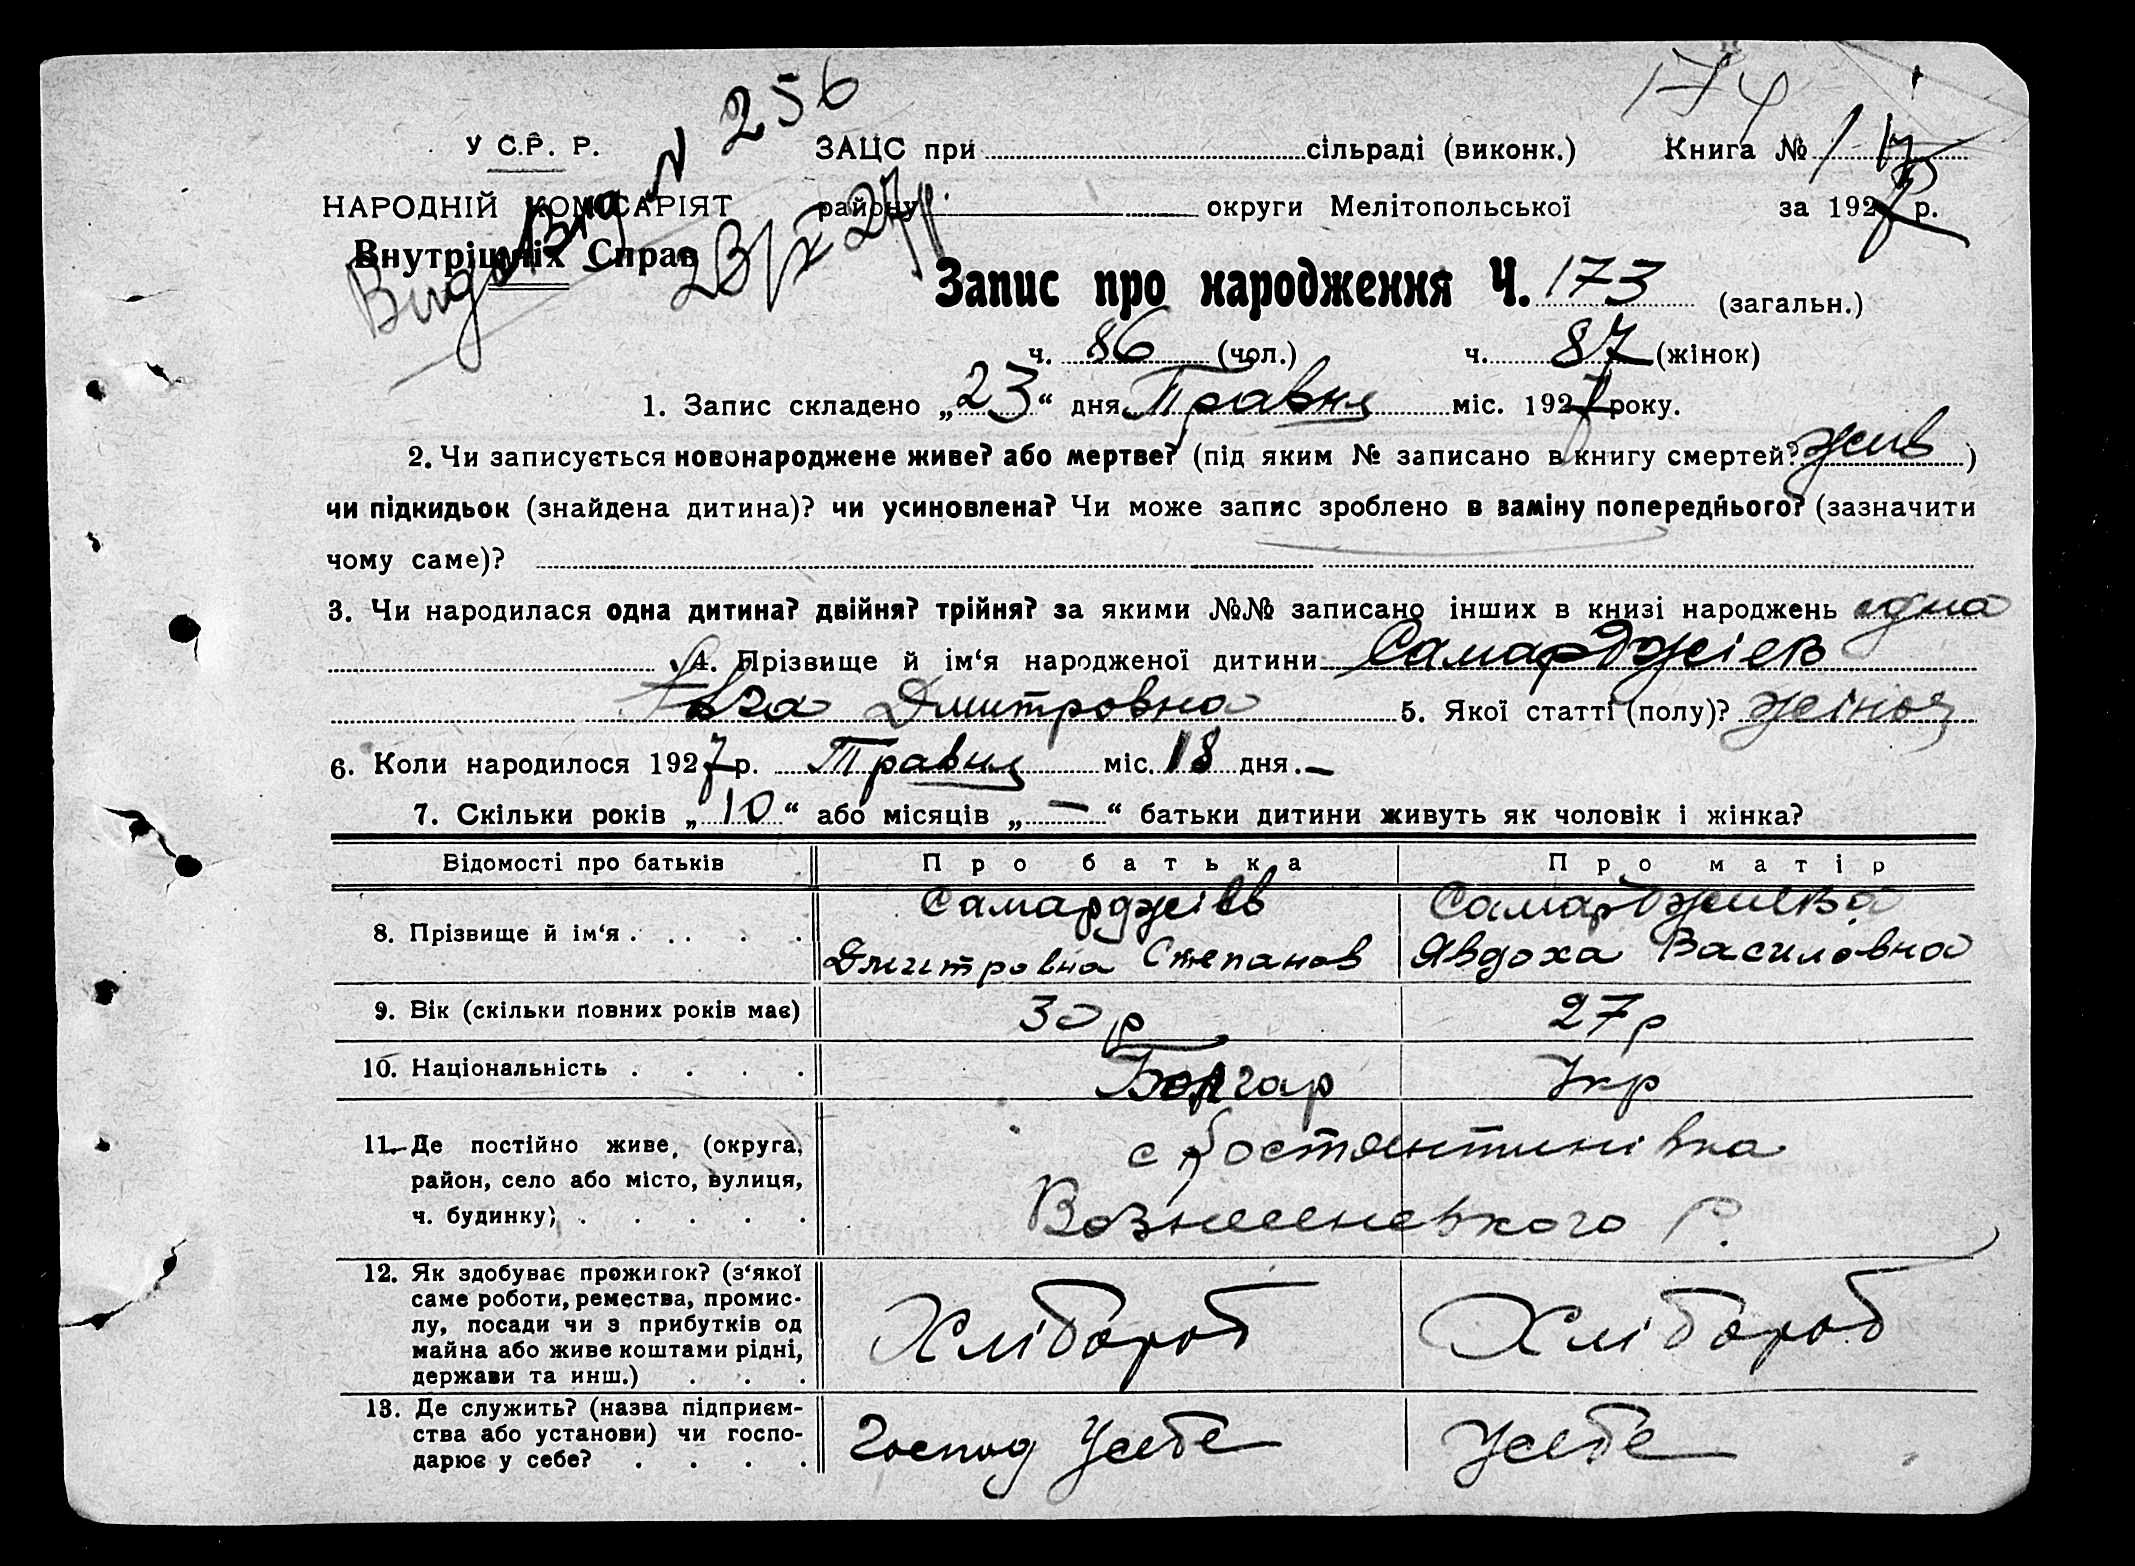 174
№ 256
У С.Р.Р.
ЗАЦС при сільраді (виконк.) Книга № 1
НАРОДНІЙ КОМІСАРІЯТ
району округи Мелітопольської за 1927 р.
Внутрішніх Справ
Запис про народження Ч. 173 (загальн.)
ч. 86 (чол.) ч. 87 (жінок)
1. Запис складено „23“ дня Травня міс. 1927 року.
2. Чи записується новонароджене живе? або мертве? (під яким № записано в книгу смертей? жив)
чи підкидьок (знайдена дитина)? чи усиновлена? Чи може запис зроблено в заміну попереднього? (зазначити
чому саме)?
3. Чи народилася одна дитина? двійня? трійня? за якими №№ записано інших в книзі народжень одна
4. Прізвище й ім‘я народженої дитини Самарджіев
Дмитровна 5. Якої статті (полу)? жіноч
6. Коли народилося 1927 р. Травня міс. 18 дня.—
7. Скільки років „10“ або місяців „—“ батьки дитини живуть як чоловік і жінка?
Відомості про батьків Про батька Про матір
8. Прізвище й ім‘я Самарджіев Самарджиева
Дмитровна Степанов Явдоха Василовна
9. Вік (скільки повних років має) 30 р 27 р
10. Національність Болгар Укр
11. Де постійно живе, (округа, район, село або місто, вулиця, ч. будинку) с Костянтинівка
Вознесенського Р.
12. Як здобуває прожиток? (з‘якої саме роботи, ремества, промислу, посади чи з прибутків од майна або живе коштами рідні, держави та инш.) Хлібороб Хлібороб
13. Де служить? (назва підприємства або установи) чи господарює у себе? Господ Усебе Усебе